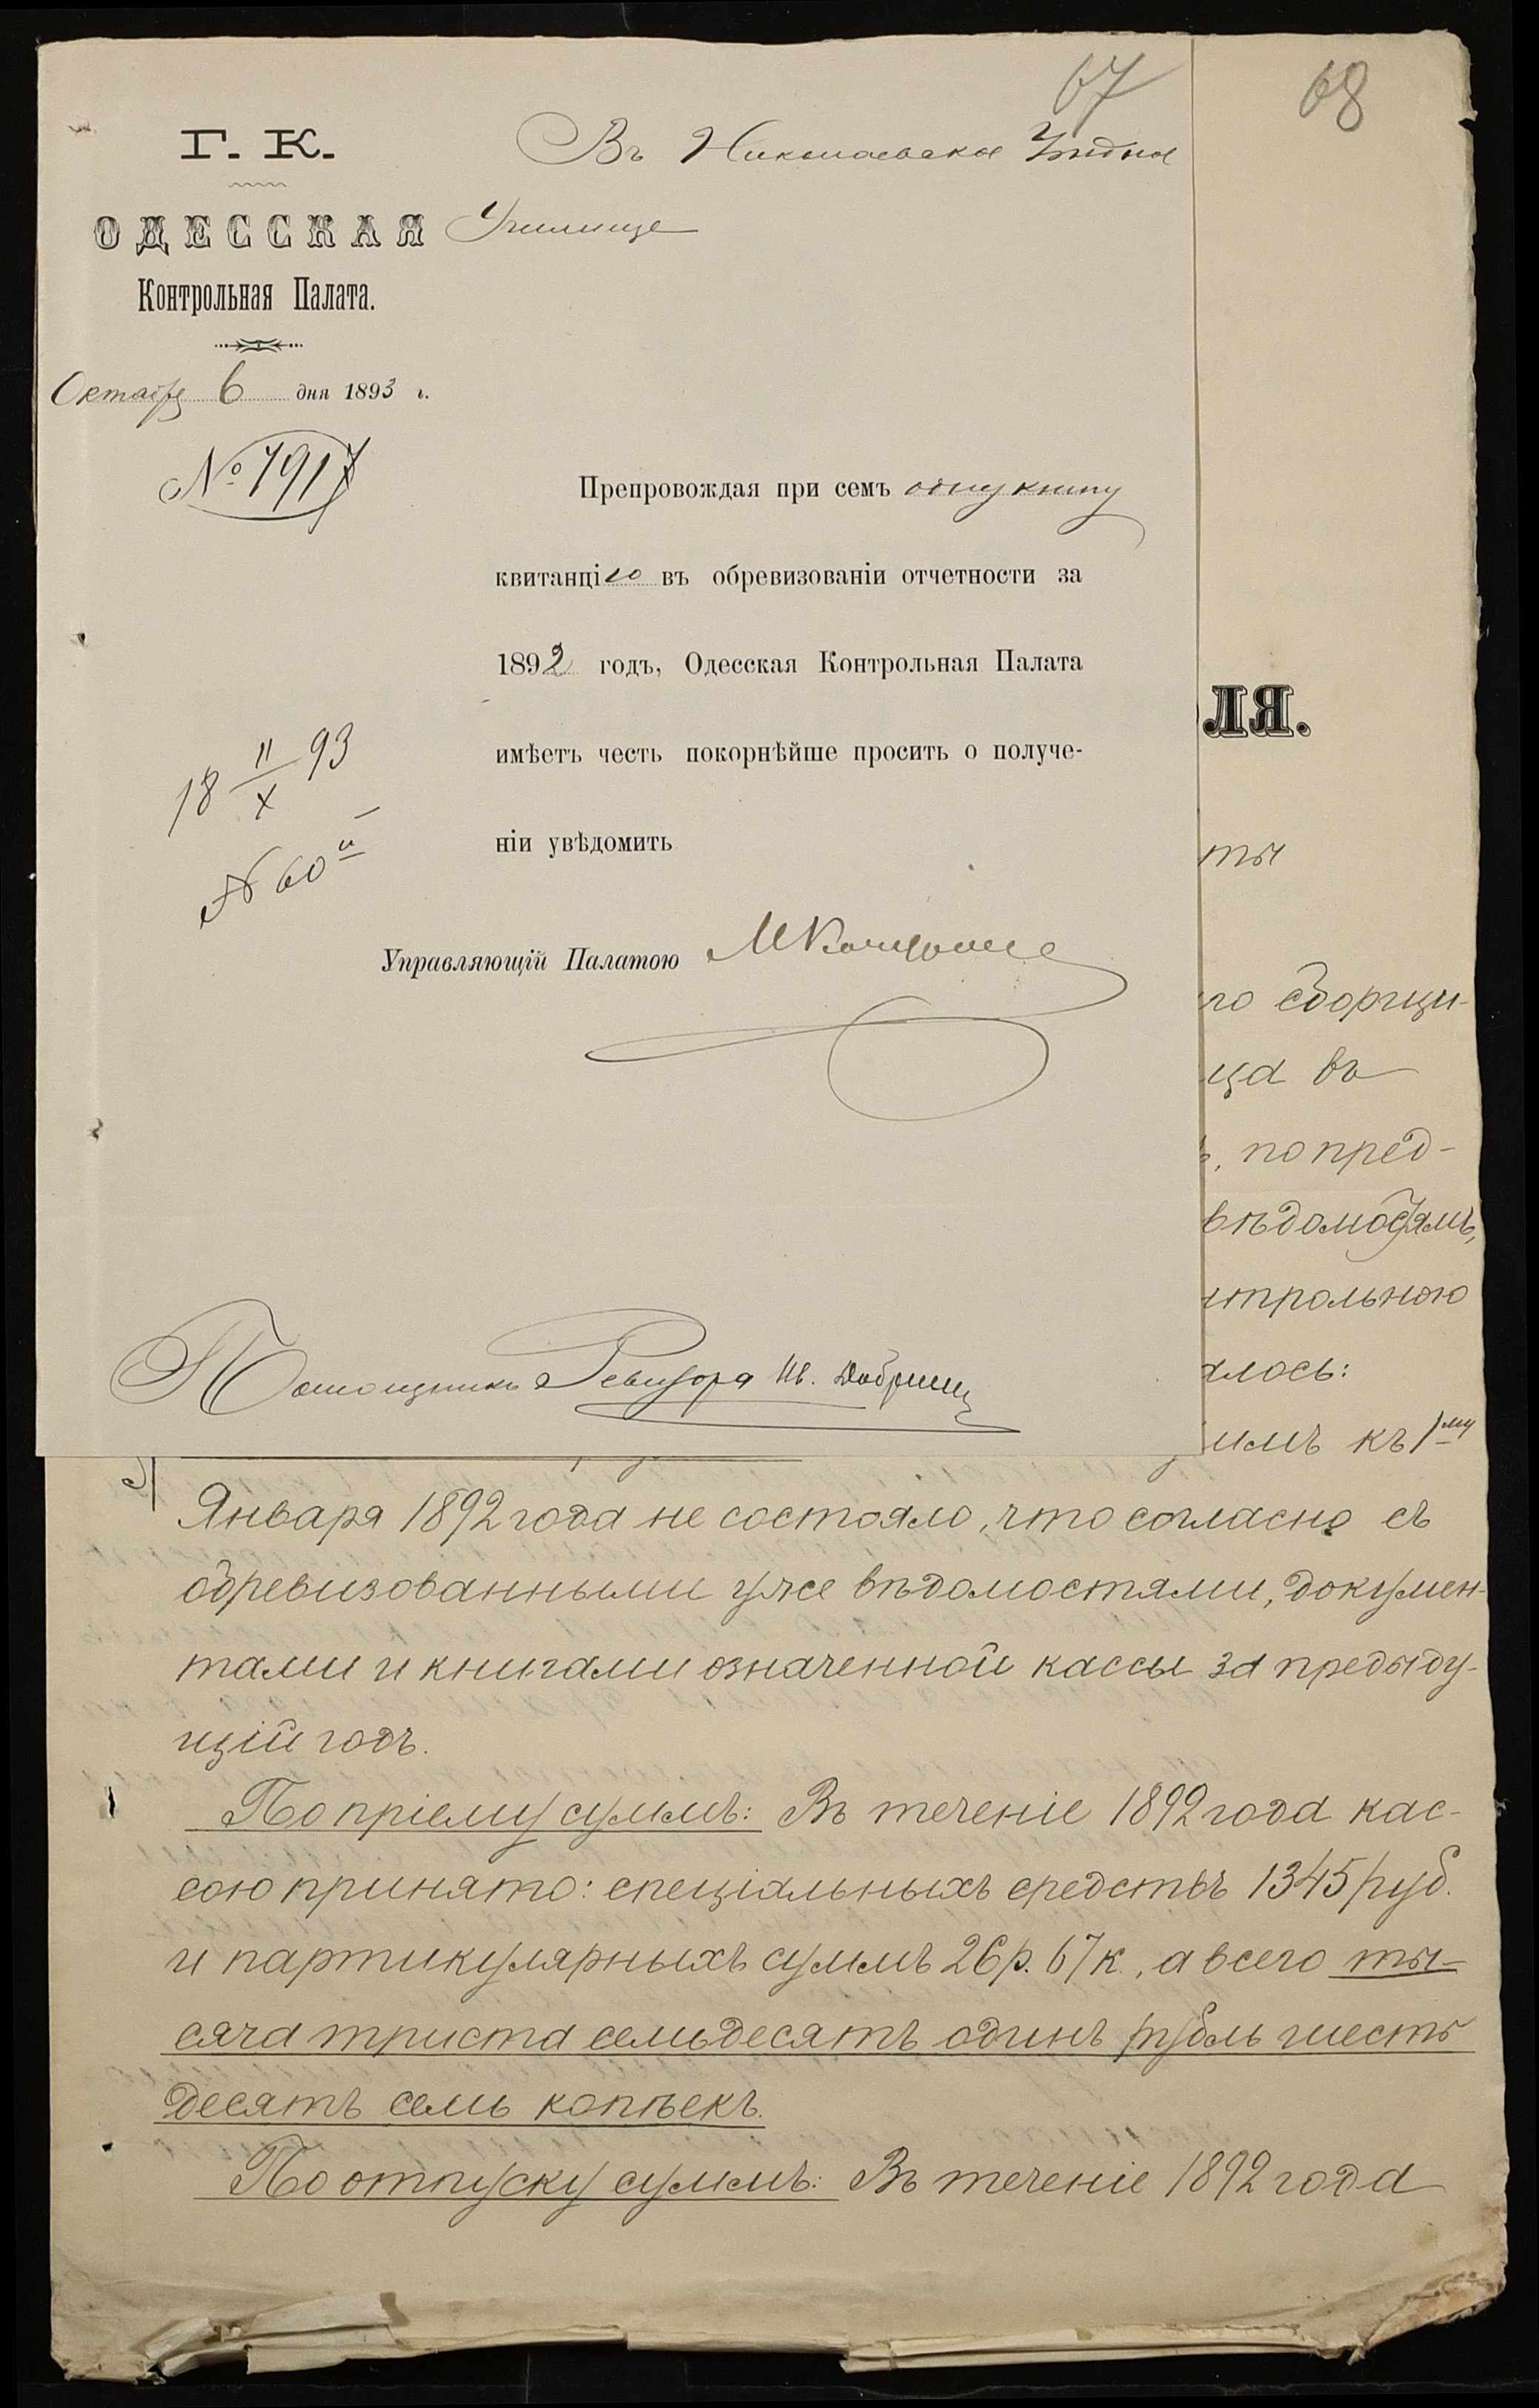 67
68
Г. К.
Въ Николаевское Уѣздное
ОДЕССКАЯ
Училище
Контрольная Палата.
Октября 6 дня 1893 г.
№ 7917
Препровождая при семъ одну
квитанцію въ обревизованіи отчетности за
1892 годъ, Одесская Контрольная Палата
имѣетъ честь покорнѣйше просить о получе-
ніи увѣдомить
18 11/X 93
№ 60
Управляющій Палатою
Помощникъ Ревизора Ив.
ЛЯ.
ты
го сборщи-
ца въ
, по пред-
вѣдомостямъ,
нтрольною
алось:
имъ къ 1му
Января 1892 года не состояло, что согласно съ
обревизованными уже вѣдомостями, докумен-
тами и книгами означенной кассы за предыду-
щій годъ.
По пріему суммъ: Въ теченіе 1892 года кас-
сою принято: спеціальныхъ средствъ 1345 руб.
и партикулярныхъ суммъ 26 р. 67 к., а всего ты-
сяча триста семьдесятъ одинъ рубль шесть
десятъ семь копѣекъ.
По отпуску суммъ: Въ теченіе 1892 года